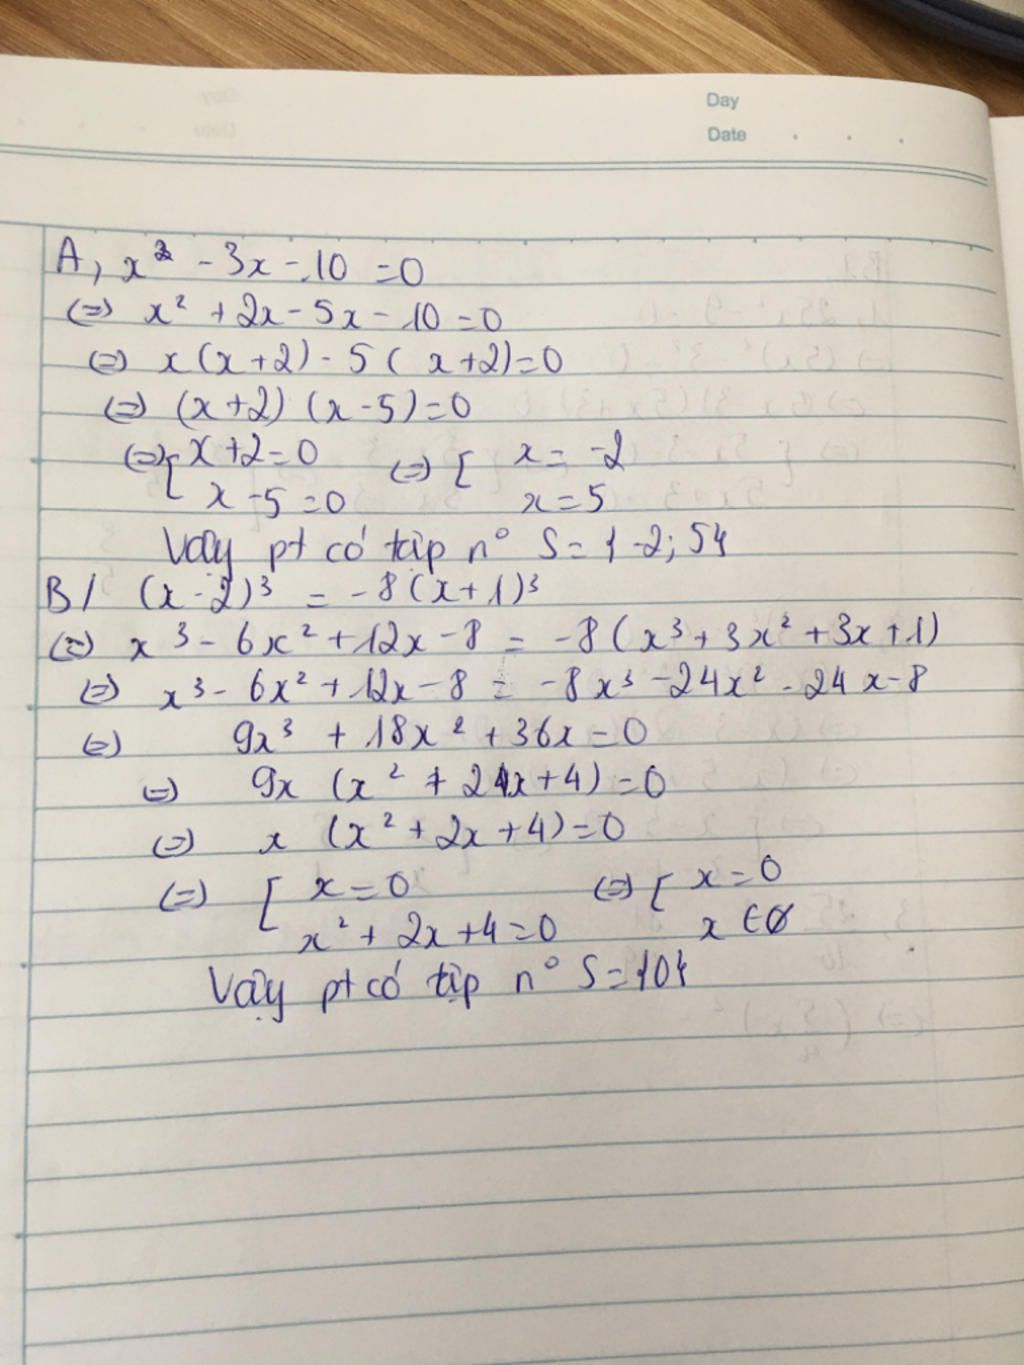 Day
Date
A, x² - 3x - 10 = 0
(=) x² + 2x - 5x - 10 = 0
(=) x (x + 2) - 5 ( x + 2) = 0
(=) (x + 2) (x - 5) = 0
(=) [ x + 2 = 0 (=) [ x = -2
x - 5 = 0 x = 5
Vậy pt có tập n° S = {-2; 5}
B/ (x - 2)³ = -8 (x + 1)³
(=) x³ - 6x² + 12x - 8 = -8 (x³ + 3x² + 3x + 1)
(=) x³ - 6x² + 12x - 8 = -8x³ - 24x² - 24x - 8
(=) 9x³ + 18x² + 36x = 0
(=) 9x (x² + 2x + 4) = 0
(=) x (x² + 2x + 4) = 0
(=) [ x = 0 (=) [ x = 0
x² + 2x + 4 = 0 x ∈ ∅
Vậy pt có tập n° S = {0}